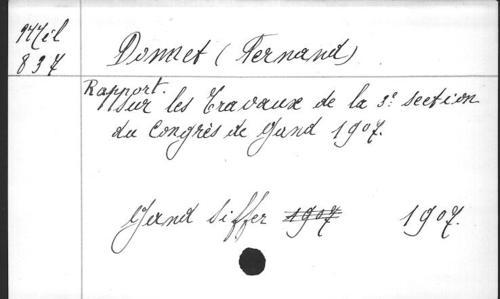 944 il
837
Donnet (Fernand)
Rapport.
sur les travaux de la 3e section
du Congrès de Gand 1907.
Gand Siffer 1907 1907.